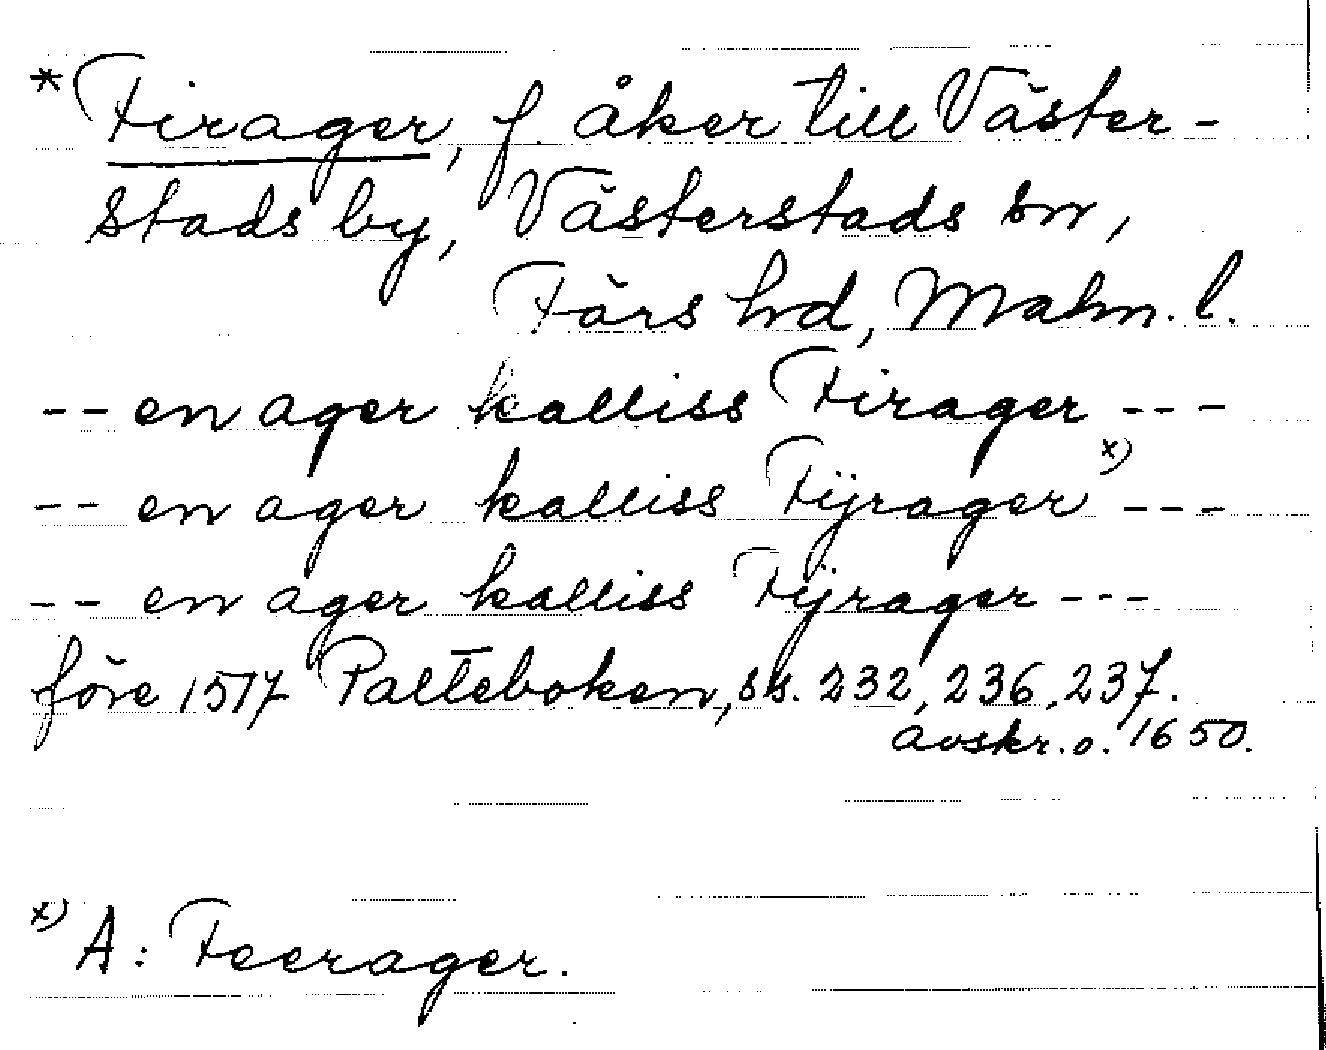 * Firager, f. åker till Väster-
stads by, Västerstads sn,
Färs hd, Malm. l.
-- en ager kalliss Firager ---
-- en ager kalliss Fÿrager x) ---
-- en ager kalliss Fÿrager ---
före 1517 Palteboken, ss. 232, 236, 237.
avskr. o. 1650.
x) A: Feerager.